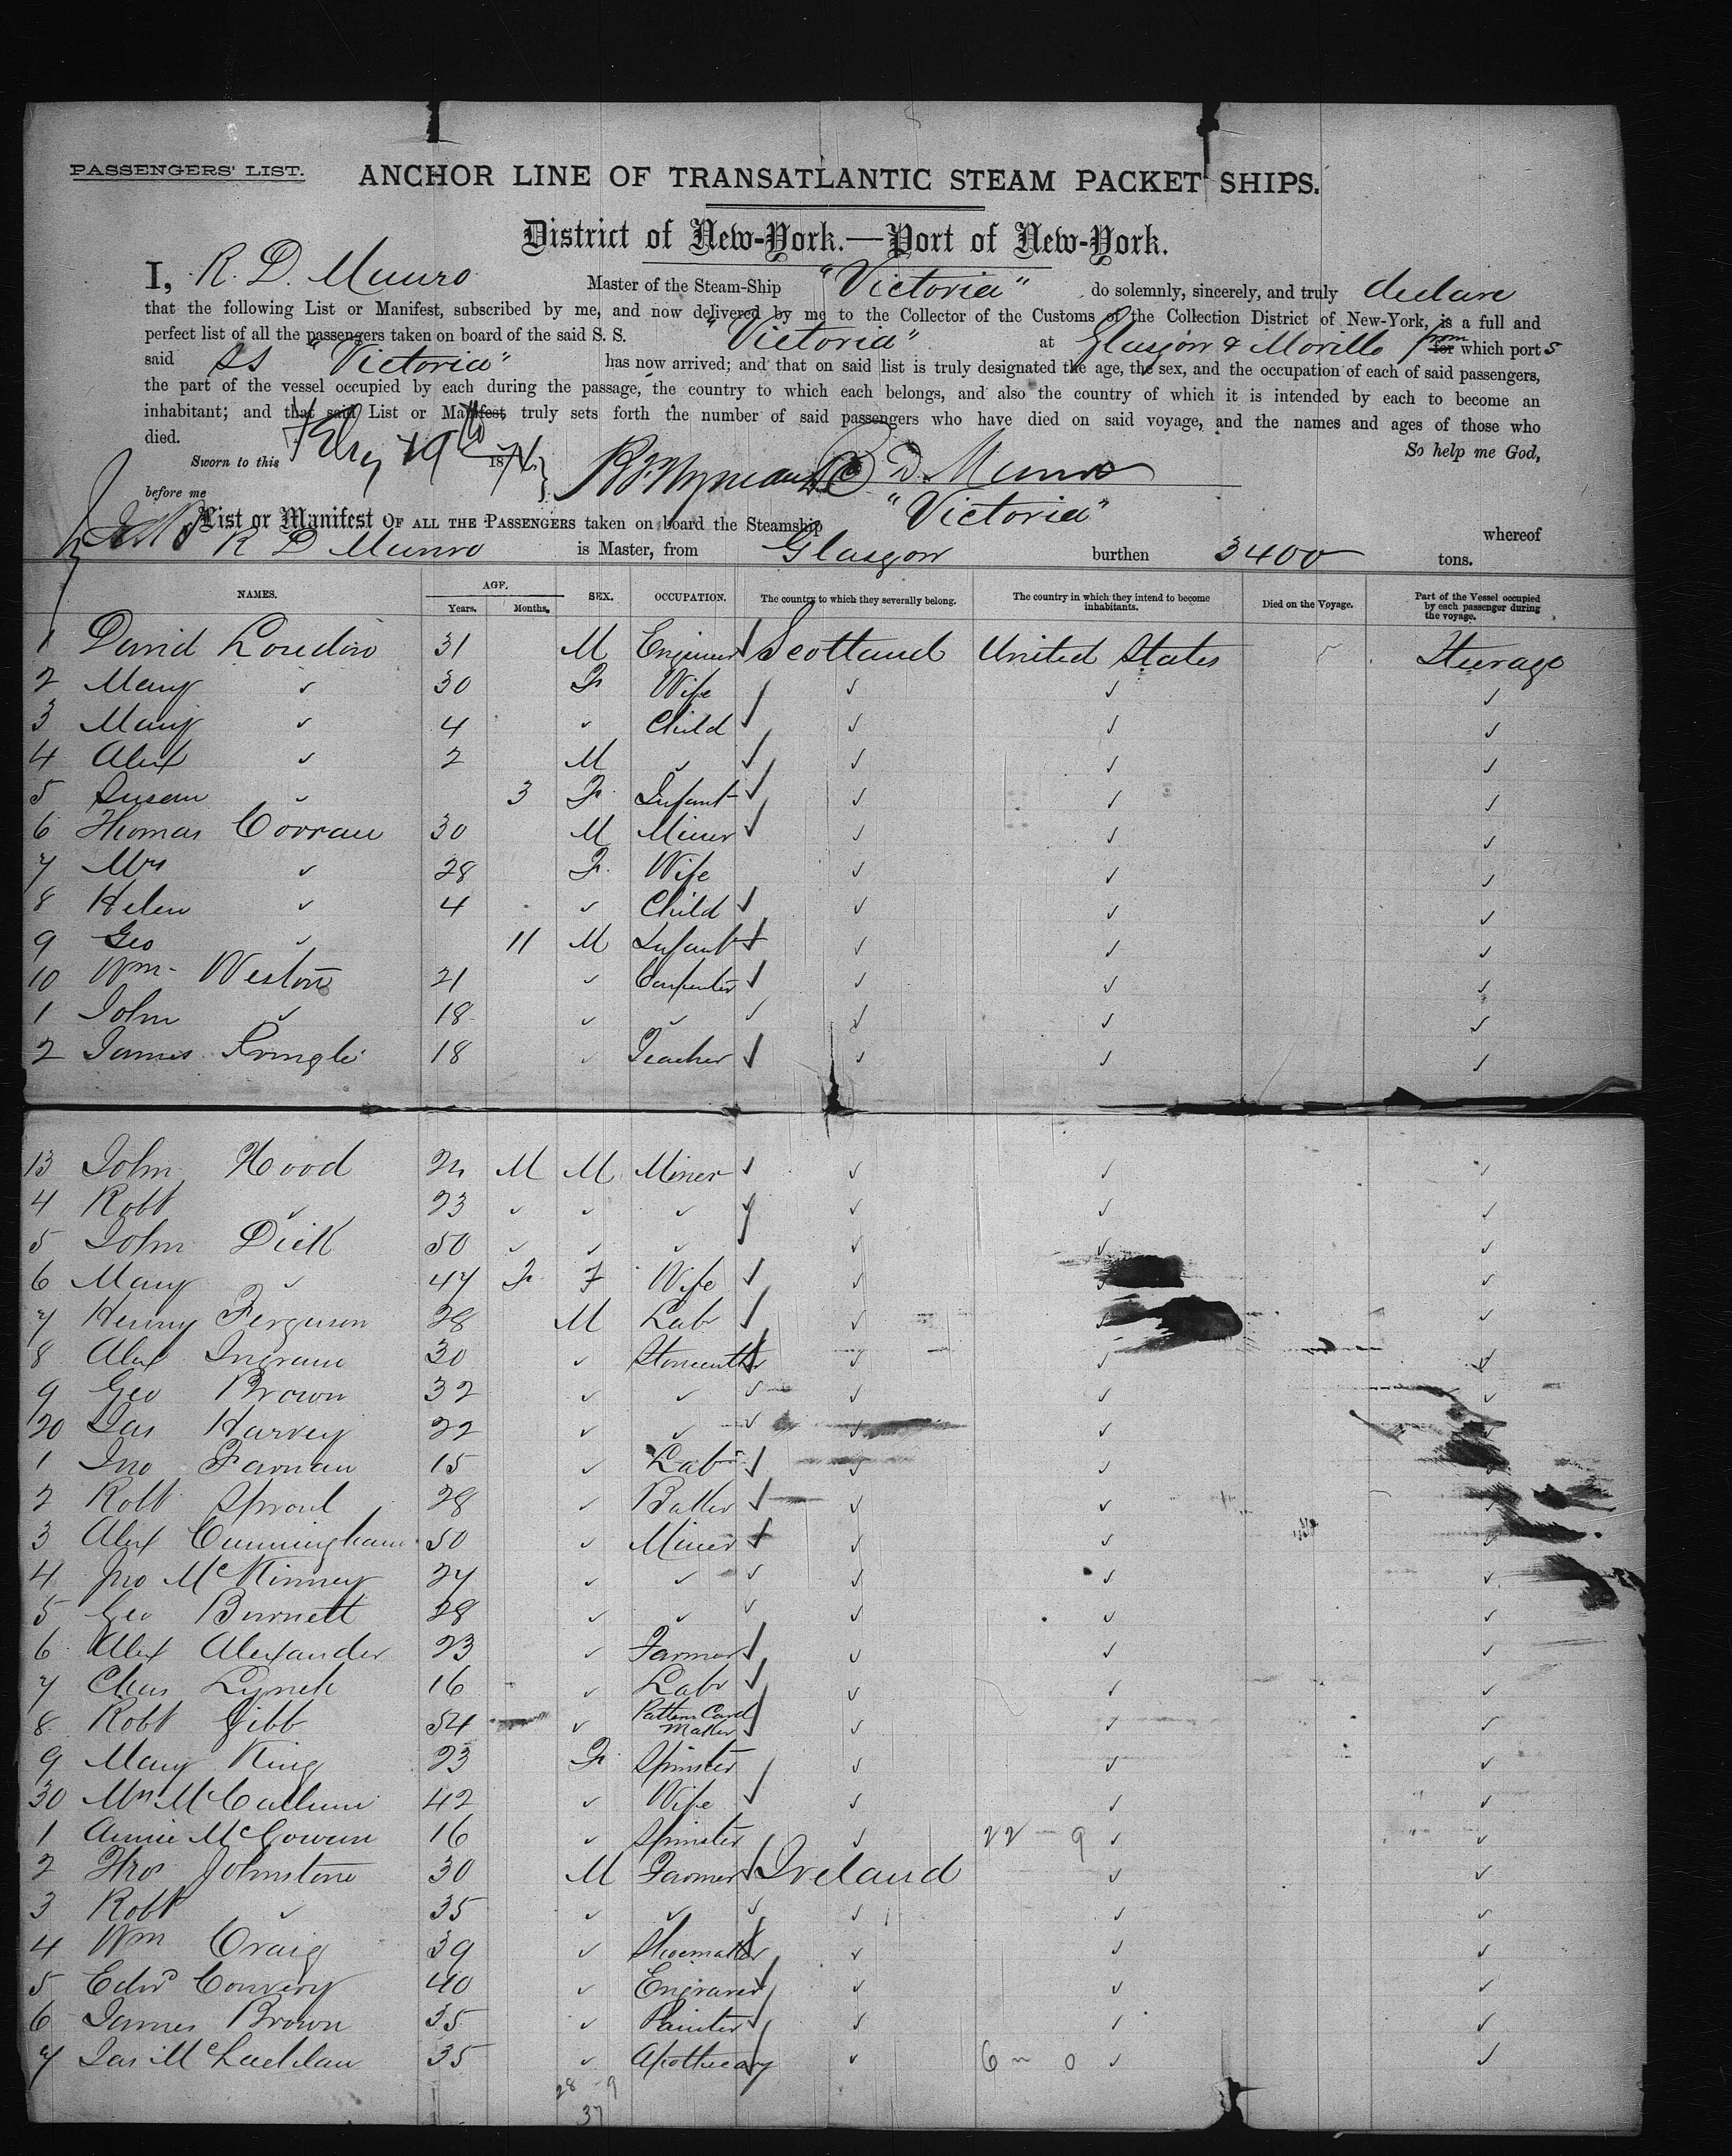 PASSENGERS' LIST. ANCHOR LINE OF TRANSATLANTIC STEAM PACKET SHIPS.
District of New-York.—Port of New-York.
I, R. D. Munro Master of the Steam-Ship "Victoria" do solemnly, sincerely, and truly declare
that the following List or Manifest, subscribed by me, and now delivered by me to the Collector of the Customs of the Collection District of New-York, is a full and
perfect list of all the passengers taken on board of the said S. S. "Victoria" at Glasgow & Moville from for which port s
said SS "Victoria" has now arrived; and that on said list is truly designated the age, the sex, and the occupation of each of said passengers,
the part of the vessel occupied by each during the passage, the country to which each belongs, and also the country of which it is intended by each to become an
inhabitant; and that said List or Manifest truly sets forth the number of said passengers who have died on said voyage, and the names and ages of those who
died. So help me God,
Sworn to this Feby 19th 187 R D. Munro
before me
List or Manifest OF ALL THE PASSENGERS taken on board the Steamship "Victoria" whereof
R D Munro is Master, from Glasgow burthen 3400 tons.
NAMES. AGE. Years. Months. SEX. OCCUPATION. The country to which they severally belong. The country in which they intend to become inhabitants. Died on the Voyage. Part of the Vessel occupied by each passenger during the voyage.
1 David Loudon 31 M Engineer Scotland United States Steerage
2 Mary ✓ 30 F Wife ✓ ✓ ✓
3 Mary ✓ 4 ✓ Child ✓ ✓ ✓
4 Alex ✓ 2 M ✓ ✓ ✓ ✓
5 Susan ✓ 3 F Infant ✓ ✓ ✓
6 Thomas Corran 30 M Miner ✓ ✓ ✓
7 Mrs ✓ 28 F. Wife ✓ ✓ ✓
8 Helen ✓ 4 ✓ Child ✓ ✓ ✓
9 Geo ✓ 11 M Infant ✓ ✓ ✓
10 Wm. Weston 21 ✓ Carpenter ✓ ✓ ✓
1 John ✓ 18 ✓ ✓ ✓ ✓ ✓
2 James Pringle 18 ✓ Teacher ✓ ✓ ✓
13 John Hood M M Miner ✓ ✓ ✓
4 Robt ✓ 23 ✓ ✓ ✓ ✓ ✓ ✓
5 John Dick 50 ✓ ✓ ✓ ✓ ✓ ✓
6 Mary ✓ 47 F F Wife ✓ ✓ ✓
7 Henry Ferguson 28 M Labr ✓ ✓ ✓
8 Alex Ingram 30 ✓ Stonecutter ✓ ✓ ✓
9 Geo Brown 32 ✓ ✓ ✓ ✓ ✓
20 Jas Harvey 22 ✓ ✓ ✓ ✓ ✓
1 Jno Farnan 15 ✓ Labr ✓ ✓ ✓
2 Robt Sproul 28 ✓ Baker ✓ ✓ ✓
3 Alex Cunningham 50 ✓ Miner ✓ ✓ ✓
4 Jno McKinney 24 ✓ ✓ ✓ ✓ ✓
5 Geo Burnett 28 ✓ ✓ ✓ ✓ ✓
6 Alex Alexander 23 ✓ Farmer ✓ ✓ ✓
7 Chas Lynch 16 ✓ Labr ✓ ✓ ✓
8 Robt Gibb 54 ✓ Pattern Card Maker ✓ ✓ ✓
9 Mary King 23 F. Spinster ✓ ✓ ✓
30 Mrs McCallum 42 ✓ Wife ✓ ✓ ✓
1 Annie McGowan 16 ✓ Spinster ✓ 22 - 9 ✓ ✓
2 Thos Johnstone 30 M Farmer Ireland ✓ ✓
3 Robt ✓ 35 ✓ ✓ ✓ ✓ ✓
4 Wm Craig 39 ✓ Shoemaker ✓ ✓ ✓
5 Edwd Convery 40 ✓ Engraver ✓ ✓ ✓
6 James Brown 35 ✓ Painter ✓ ✓ ✓
7 Jas McLachlan 35 ✓ Apothecary ✓ 6 - 0 ✓ ✓
28 - 9
37